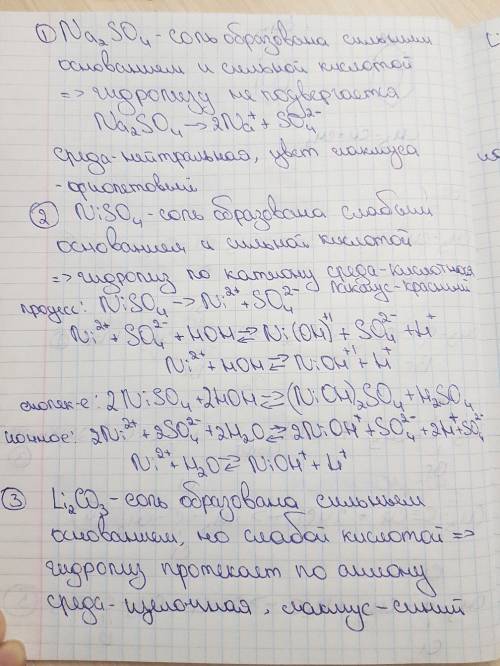 ① Na₂SO₄ - соль образована сильным
основанием и сильной кислотой
=> гидролизу не подвергается
Na₂SO₄ → 2Na⁺ + SO₄²⁻
среда - нейтральная, цвет лакмуса
- фиолетовый
② NiSO₄ - соль образована слабым
основанием и сильной кислотой
=> гидролиз по катиону среда - кислотная
лакмус - красный
процесс: NiSO₄ → Ni²⁺ + SO₄²⁻
Ni²⁺ + SO₄²⁻ + HOH ⇄ Ni(OH)⁺¹ + SO₄²⁻ + H⁺
Ni²⁺ + HOH ⇄ NiOH⁺¹ + H⁺
молек-е: 2NiSO₄ + 2HOH ⇄ (NiOH)₂SO₄ + H₂SO₄
ионное: 2Ni²⁺ + 2SO₄²⁻ + 2H₂O ⇄ 2NiOH⁺ + SO₄²⁻ + 2H⁺ + SO₄²⁻
Ni²⁺ + H₂O ⇄ NiOH⁺ + H⁺
③ Li₂CO₃ - соль образована сильным
основанием, но слабой кислотой =>
гидролиз протекает по аниону
среда - щелочная, лакмус - синий